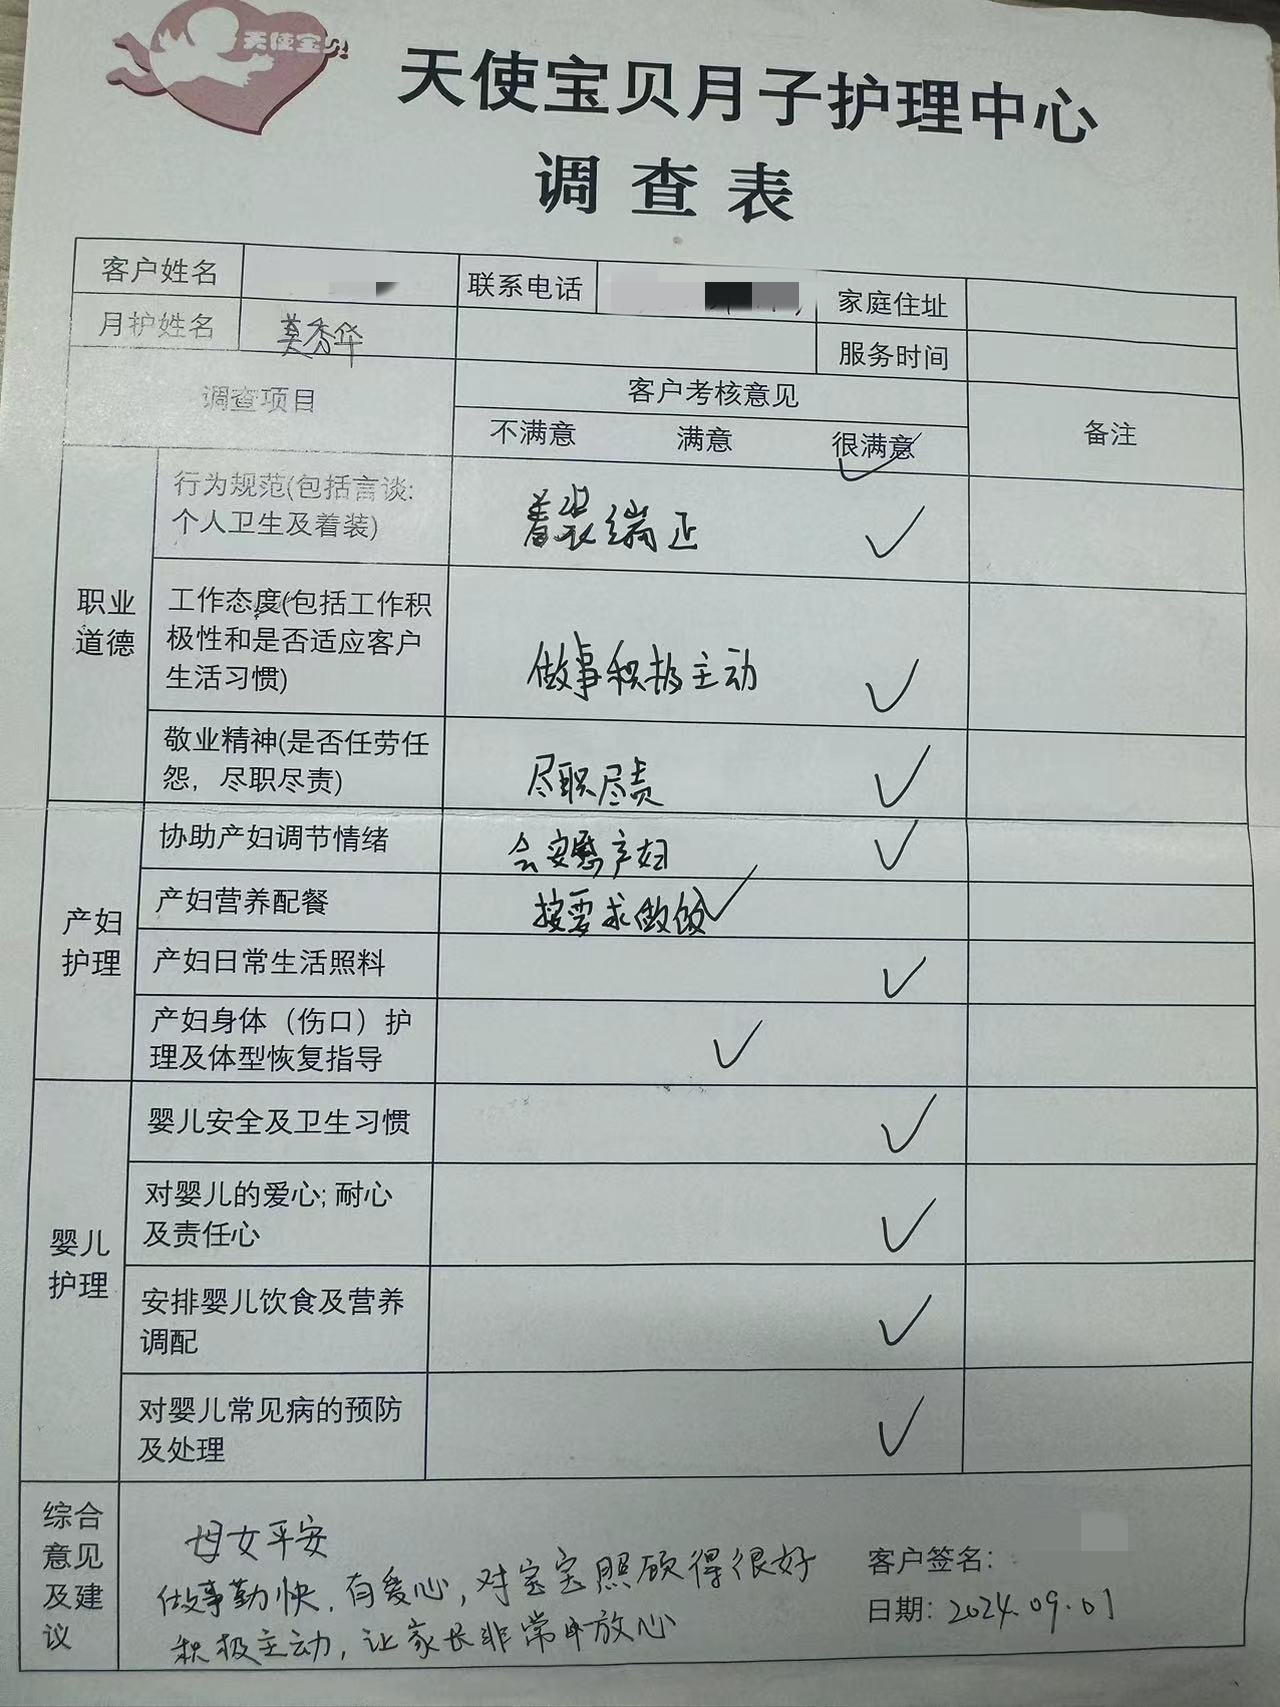 天使宝贝
天使宝贝月子护理中心
调查表
客户姓名 联系电话 家庭住址
月护姓名 莫秀华 服务时间
调查项目 客户考核意见 备注
不满意 满意 很满意 ✓
职业道德
行为规范(包括言谈:
个人卫生及着装) 着装端正 ✓
工作态度(包括工作积
极性和是否适应客户
生活习惯) 做事积极主动 ✓
敬业精神(是否任劳任
怨，尽职尽责) 尽职尽责 ✓
产妇护理
协助产妇调节情绪 会安慰产妇 ✓
产妇营养配餐 按要求做饭 ✓
产妇日常生活照料 ✓
产妇身体（伤口）护
理及体型恢复指导 ✓
婴儿护理
婴儿安全及卫生习惯 ✓
对婴儿的爱心; 耐心
及责任心 ✓
安排婴儿饮食及营养
调配 ✓
对婴儿常见病的预防
及处理 ✓
综合意见及建议
母女平安
做事勤快，有爱心，对宝宝照顾得很好
积极主动，让家长非常放心
客户签名:
日期: 2024.09.01